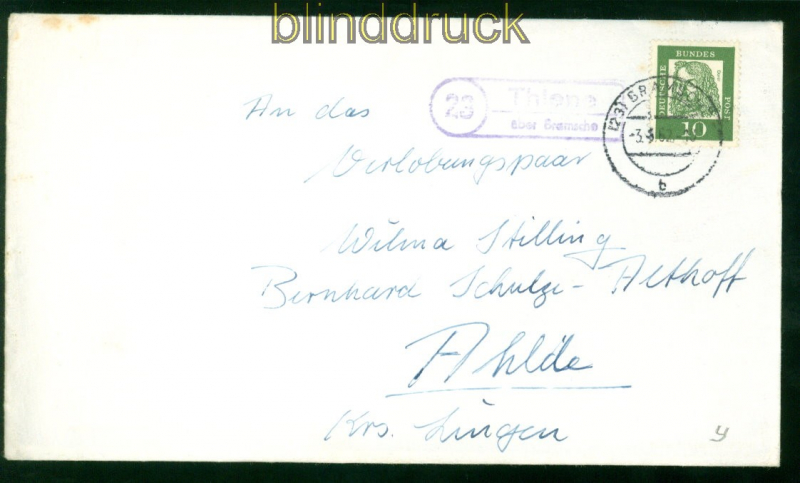 blinddruck
23 Thiene
über Bramsche
DEUTSCHE BUNDES POST
10
(23) BRAMSCHE
b
An das
Verlobungspaar
Wilma Stilling
Bernhard Schulze-Althoff
Ahlde
Krs. Lingen
y